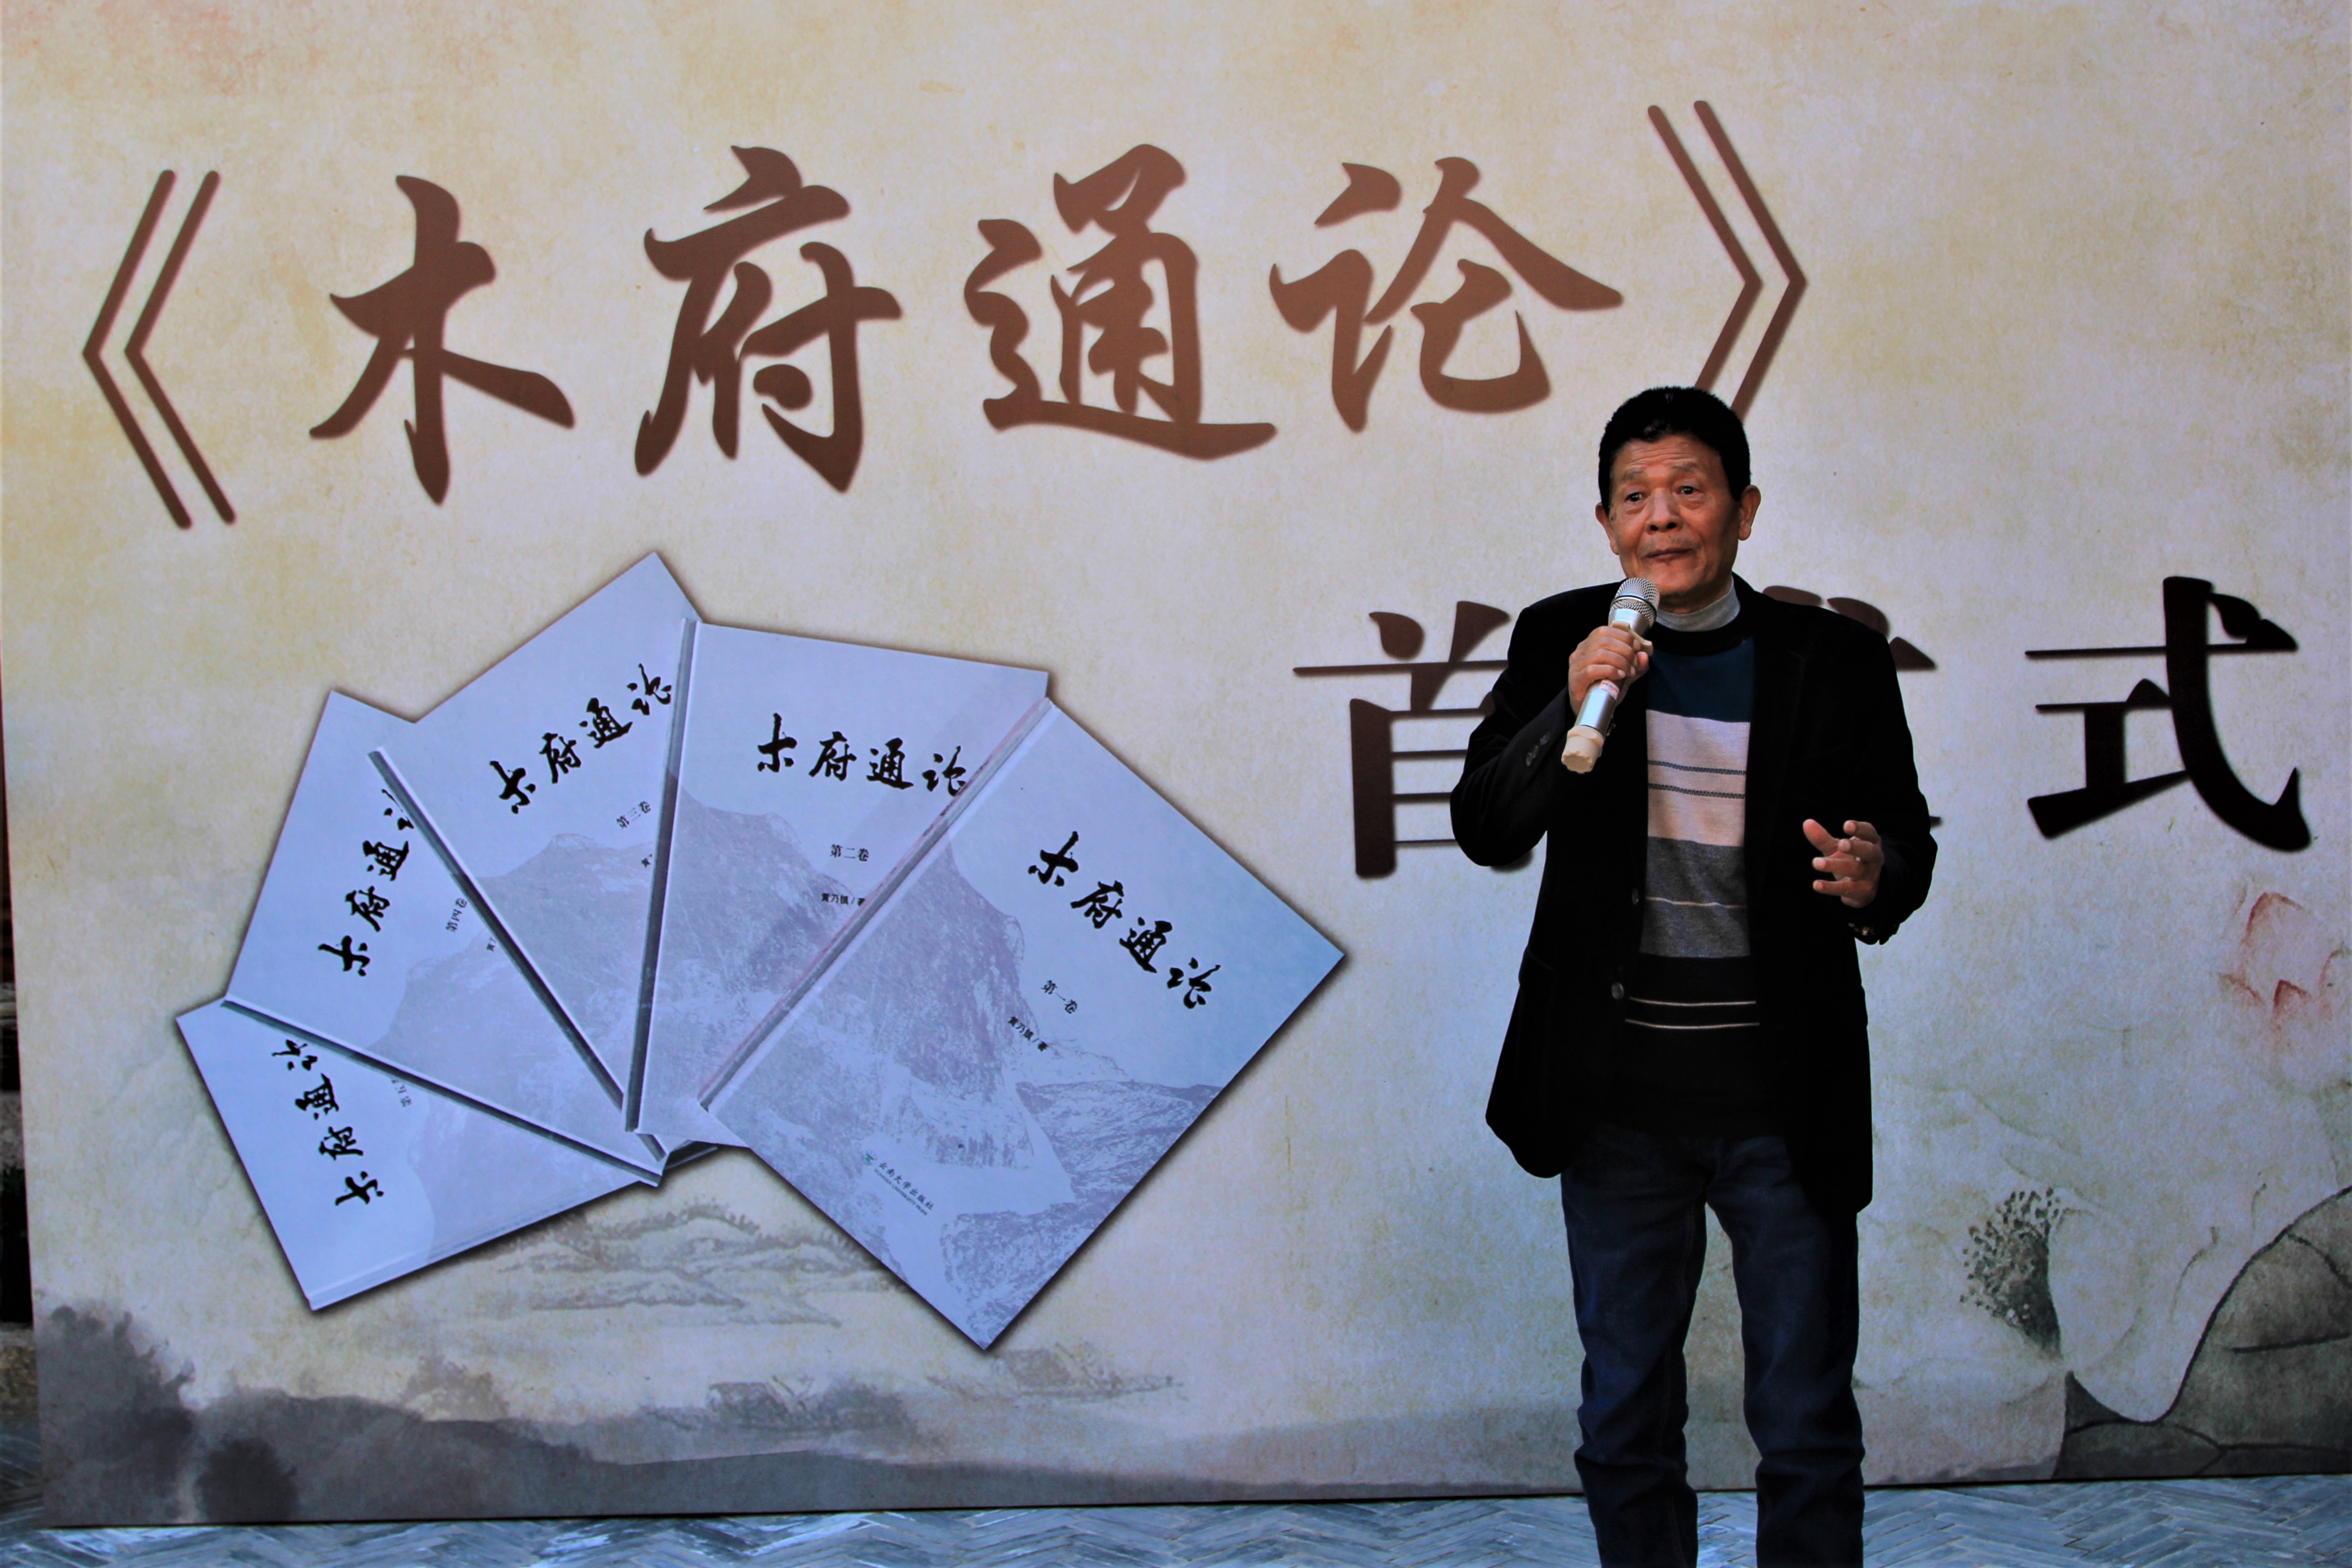 《木府通论》
首 式
木府通论
第一卷
黄乃镇/著
云南大学出版社
YUNNAN UNIVERSITY PRESS
木府通论
第二卷
黄乃镇/著
木府通论
第三卷
黄
木府通论
第四卷
黄
木府通论